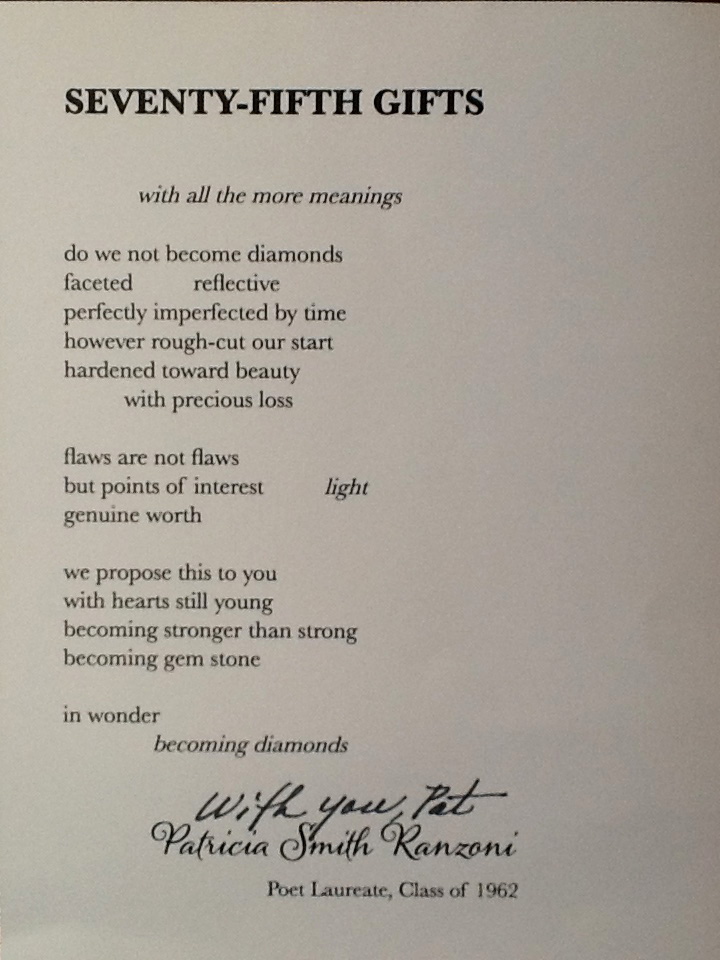 SEVENTY-FIFTH GIFTS
with all the more meanings
do we not become diamonds
faceted reflective
perfectly imperfected by time
however rough-cut our start
hardened toward beauty
with precious loss
flaws are not flaws
but points of interest light
genuine worth
we propose this to you
with hearts still young
becoming stronger than strong
becoming gem stone
in wonder
becoming diamonds
With you, Pat
Patricia Smith Ranzoni
Poet Laureate, Class of 1962